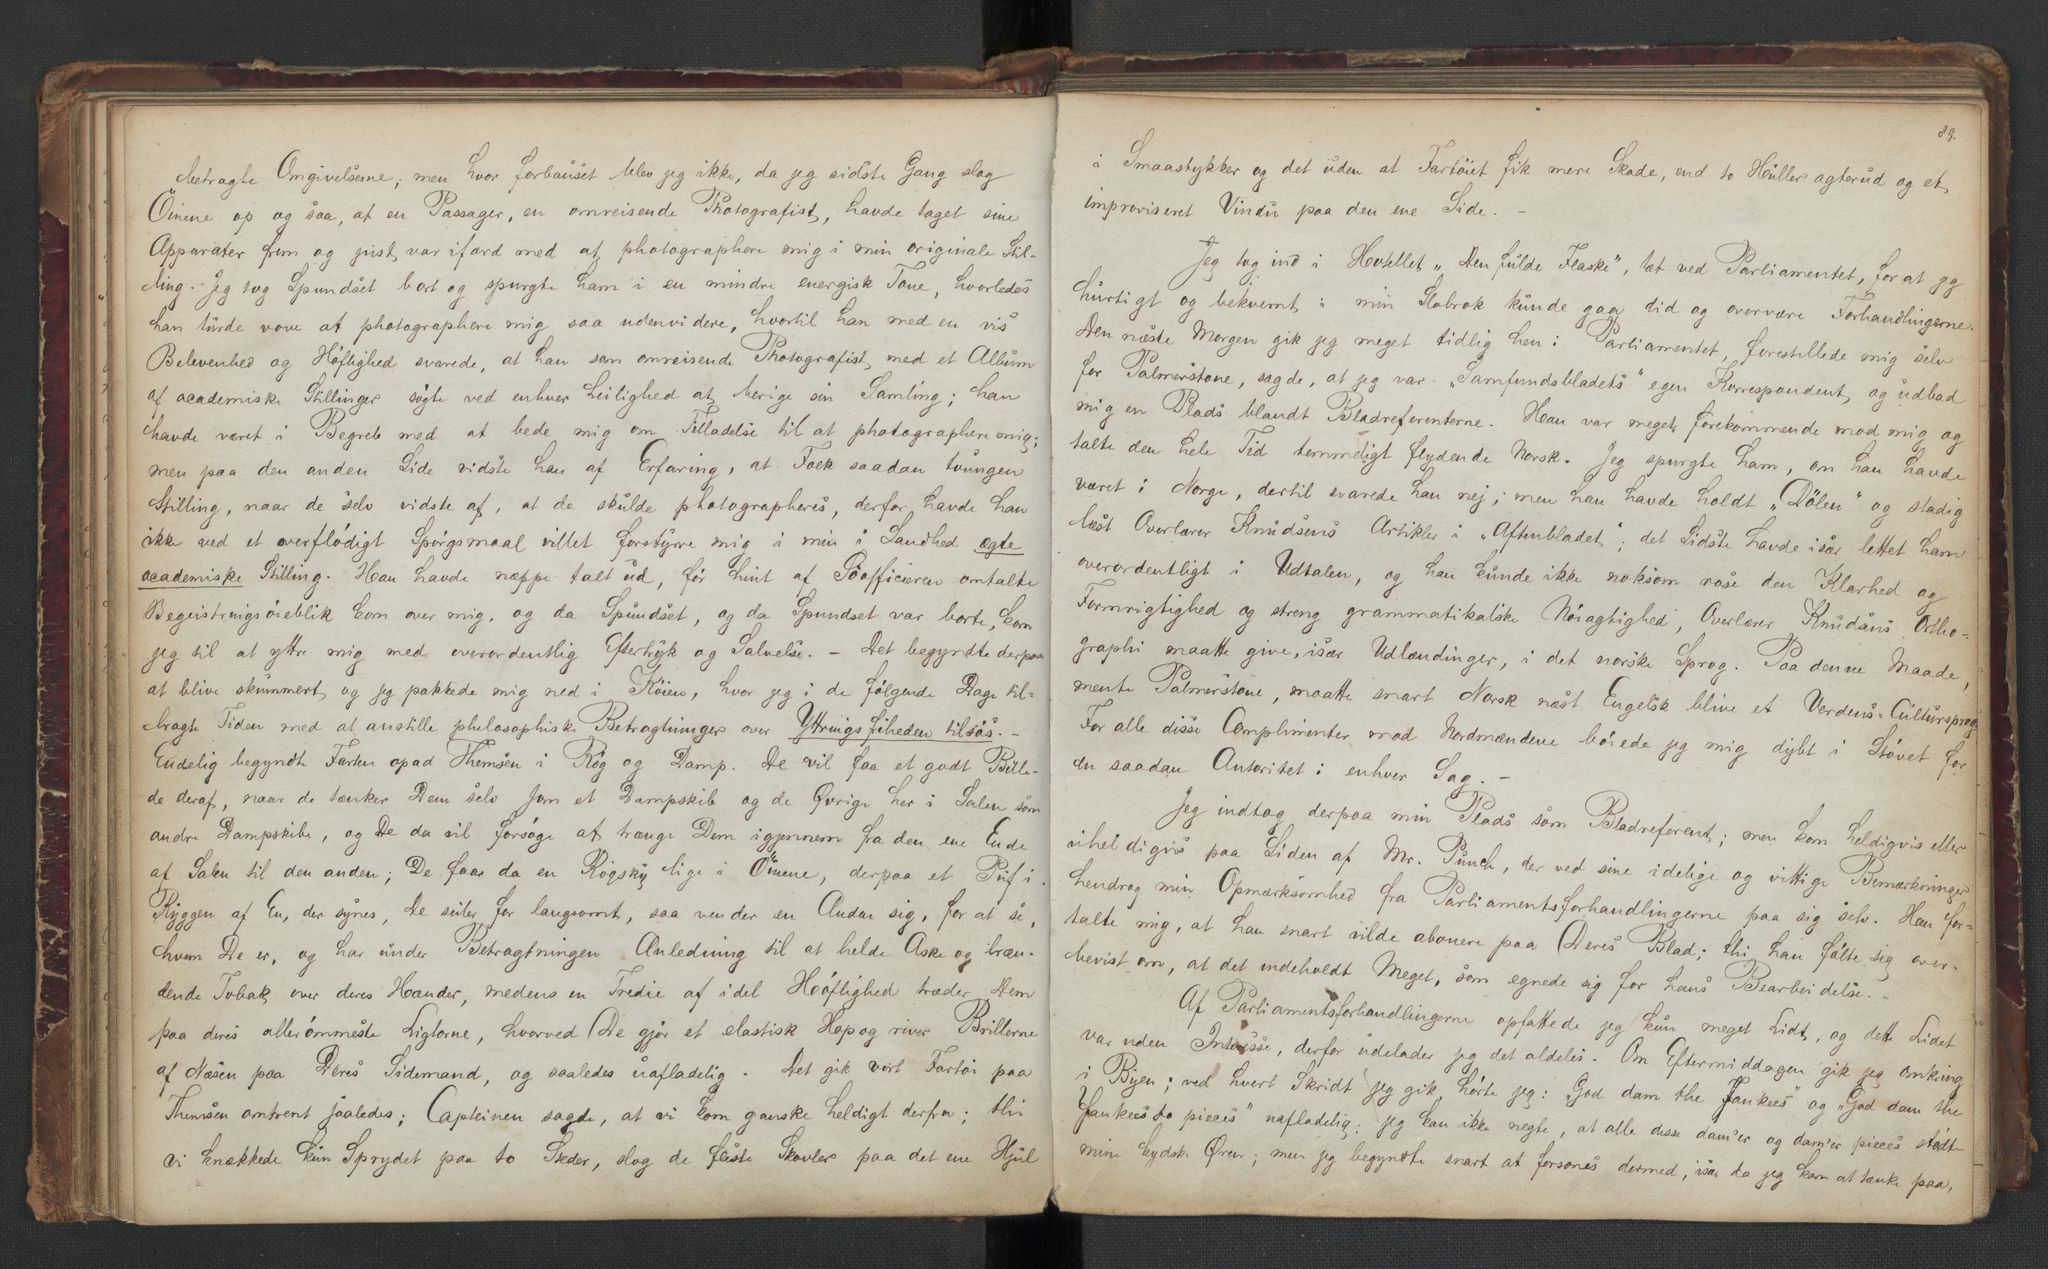 betragte Omgivelserne; men hvor forbauset blev jeg ikke, da jeg sidste Gang slog
Öinene op og saa, at en Passager, en omreisende Photografist, havde taget sine
Apparater frem og just var ifærd med at photographere mig i min originale Stil-
ling. Jeg tog Spundset bort og spurgte ham i en mindre energisk Tone, hvorledes
han turde vove at photographere mig saa udenvidere, hvortil han med en vis
Belevenhed og Höflighed svarede, at han som omreisende Photografist med et Album
af academiske Stillinger sögte ved enhver Leilighed at berige sin Samling; han
havde været i Begreb med at bede mig om Tilladelse til at photographere mig;
men paa den anden Side vidste han af Erfaring, at Folk saadan tvungen
Stilling, naar de selv vidste af, at de skulde photographeres, derfor havde han
ikke ved et overflödigt Spörgsmaal villet forstyrre mig i min i Sandhed ægte
academiske Stilling. Han havde neppe talt ud, för hint af Söofficeren omtalte
Begeistringsöieblik kom over mig, og da Spundset, og da Spundset var borte, kom
jeg til at yttre mig med overordentlig Eftertryk og Salvelse. - Det begyndte derpaa
at blive skummert, og jeg pakkede mig ned i Köien, hvor jeg i de fölgende Dage til-
bragte Tiden med at anstille philosophiske Betragtninger over Yttringsfriheden tilsös. -
Endelig begyndte Farten opad Themsen i Røg og Damp. De vil faa et godt Bille-
de deraf, naar de tænker Dem selv som et Dampskib og de Øvrige her i Salen som
andre Dampskibe, og De da vil forsöge at trænge Dem igjennem fra den ene Ende
af Salen til den anden; De faar da en Rögsky lige i Öinene, derpaa et Puf i
Ryggen af En, der synes, De seiler for langsomt, saa vender en Anden sig, for at se,
hvem De er, og har under Betragtningen Anledning til at helde Aske og bræn-
dende Tobak over deres Hænder, medens en Tredie af idel Höflighed træder Dem
paa deres allerömmeste Ligtorne, hvorved De gjör et elastisk Hop og river Brillerne
af Næsen paa Deres Sidemand, og saaledes uafladelig. Det gik vort Fartöi paa
Themsen omtrent saaledes; Capteinen sagde, at vi kom ganske heldigt derfra; thi
vi knækkede kun Sprydet paa to Steder, slog de fleste Skovler paa det ene Hjul
89.
i Smaastykker og det uden at Fartöiet fik mere Skade, end to Huller agterud og et
improviseret Vindu paa den ene Side. -
Jeg tog ind i Hotellet „Den fulde Flaske", tæt ved Parliamentet, for at jeg
hurtigt og bekvemt i min Slobrok kunde gaa did og overvære Forhandlingerne.
Den næste Morgen gik jeg meget tidlig hen i Parliamentet, forestillede mig selv
for Palmerstone, sagde, at jeg var „Samfundsbladets" egen Korrespondent, og udbad
mig en Plads blandt Bladreferenterne. Han var meget forekommende mod mig og
talte den hele Tid temmeligt flydende Norsk. Jeg spurgte ham, om han havde
været i Norge, dertil svarede han nej; men han havde holdt „Dölen" og stadig
læst Overlærer Knudsens Artikler i „Aftenbladet"; det Sidste havde især lettet ham
overordentligt i Udtalen, og han kunde ikke noksom rose den Klarhed og
Formrigtighed og streng grammatikalske Nöiagtighed, Overlærer Knudsens Ortho-
graphi maatte give, især Udlændinger, i det norske Sprog. Paa denne Maade,
mente Palmerstone, maatte snart Norsk næst Engelsk blive et Verdens-Cultursprog
For alle disse Complimenter mod Nordmændene böiede jeg mig dybt i Stövet for
en saadan Autoritet i enhver Sag. -
Jeg indtog derpaa min Plads som Bladreferent; men kom heldigvis eller
uheldigvis paa Siden af Mr. Punch, der ved sine idelige og vittige Bemærkninger
hendrog min Opmærksomhed fra Parliamentsforhandlingerne paa sig selv. Han for-
talte mig, at han snart vilde abonere paa Deres Blad; thi han fölte sig over-
bevist om, at det indeholdt Meget, som egnede sig for hans Bearbeidelse. -
Af Parliamentsforhandlingerne opfattede jeg kun meget Lidt, og dette Lidet
var uden Interesse, derfor udelader jeg det aldeles. Om Eftermiddagen gik jeg omkring
i Byen; ved hvert Skridt jeg gik, hörte jeg: „God dam the Jankees" og „God dam the
Jankees to pieces" uafladelig; jeg kan ikke negte, at alle disse dam'er og dam'er pieces stödte
mine kydske Øren; men jeg begyndte snart at forsones dermed, især da jeg kom at tænke paa,